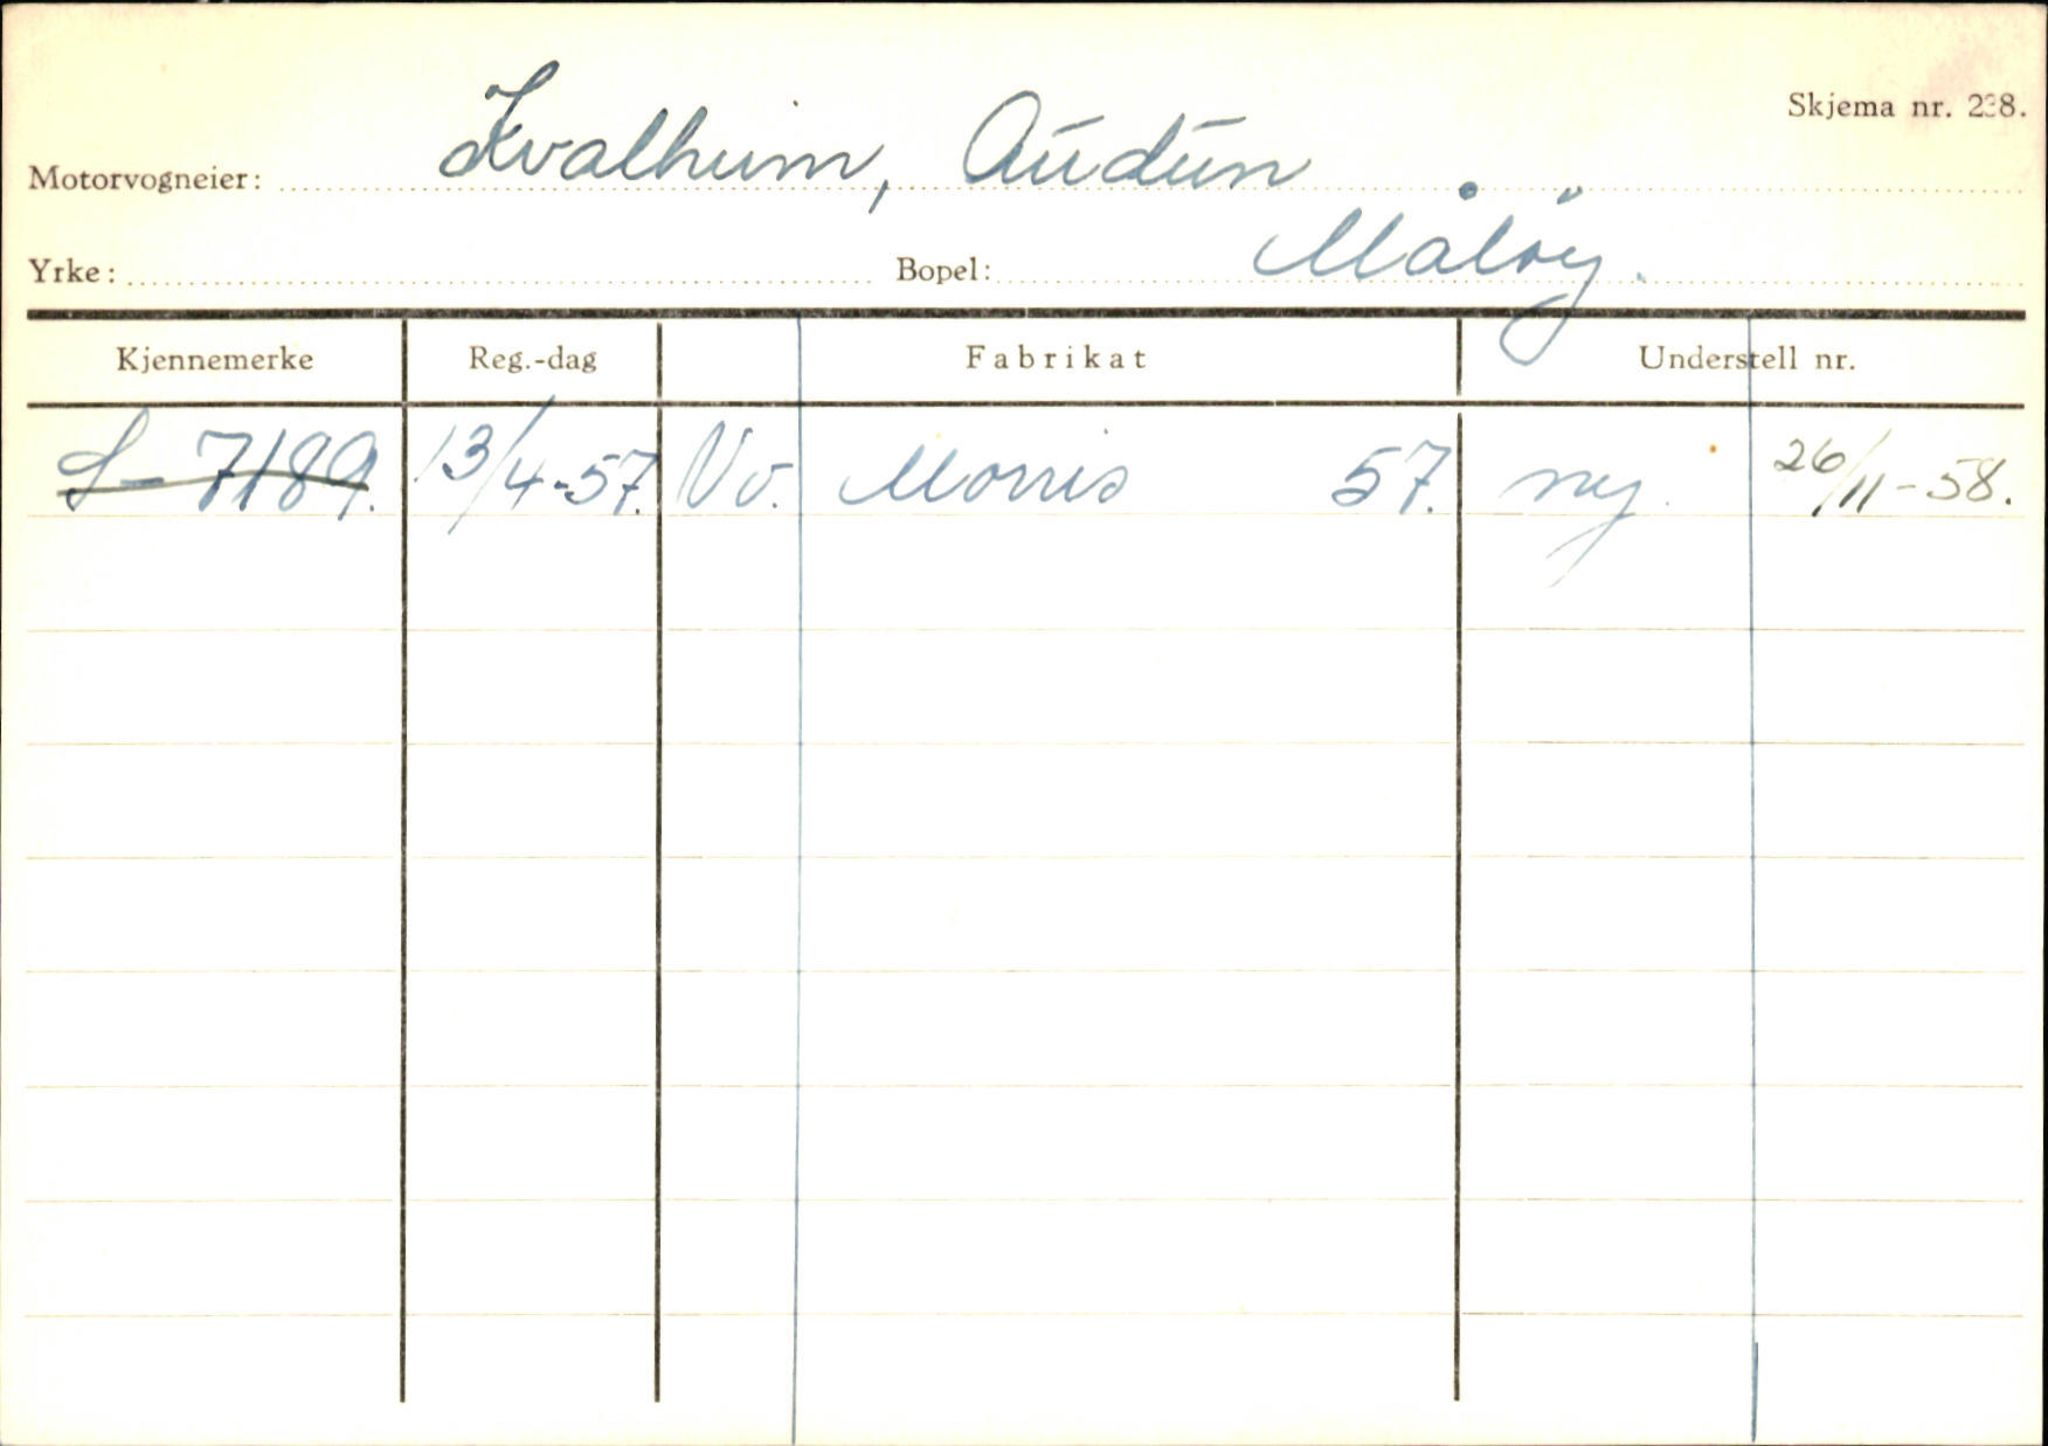 Skjema nr. 238.
Motorvogneier: Kvalheim, Audun
Yrke: Bopel: Måløy.
Kjennemerke Reg.-dag Fabrikat Understell nr.
S-7189. 13/4-57. Vv. Morris 57. ny 26/11-58.